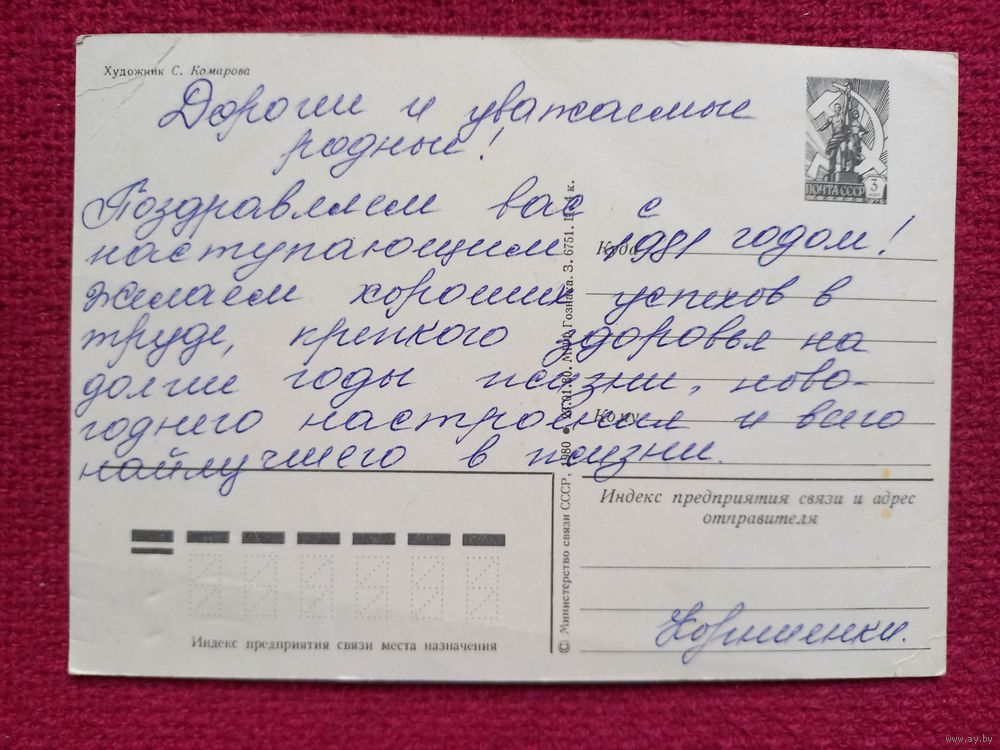 Художник С. Комарова
Дорогие и уважаемые
родные!
ПОЧТА СССР 3
Поздравляем вас с
наступающим 1981 годом!
Куда
Желаем хороших успехов в
труде, крепкого здоровья на
долгие годы жизни, ново-
годнего настроения и всего
Кому
найлучшего в жизни.
Индекс предприятия связи и адрес
отправителя
Корниенки.
Индекс предприятия связи места назначения
© Министерство связи СССР, 1980 • 28.01.80. МПФ Гознака. З. 6751. Ц. 4 к.
www.ay.by